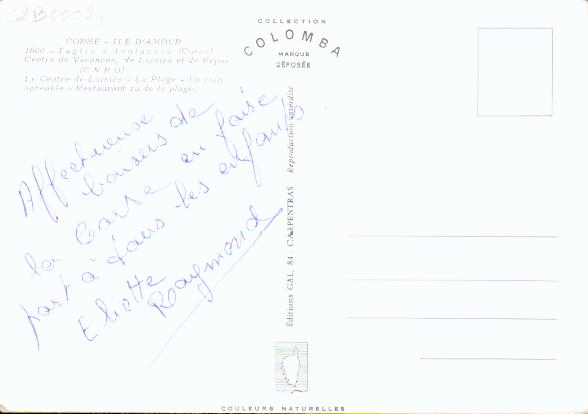 2B00024
COLLECTION
COLOMBA
MARQUE
DÉPOSÉE
CORSE - ILE D'AMOUR
1600 - Taglio - Isolaccio (Corse)
Centre de Vacances, de Loisirs et de Repos
(C N R O)
Le Centre de Loisirs - La Plage - Un coin
agréable - Restaurant vu de la plage.
Affectueuse
baisers de
la Corse en faire
part à tous les enfants
Eliette
Raymond
Editions GAL, 84 CARPENTRAS Reproduction interdite
COULEURS NATURELLES